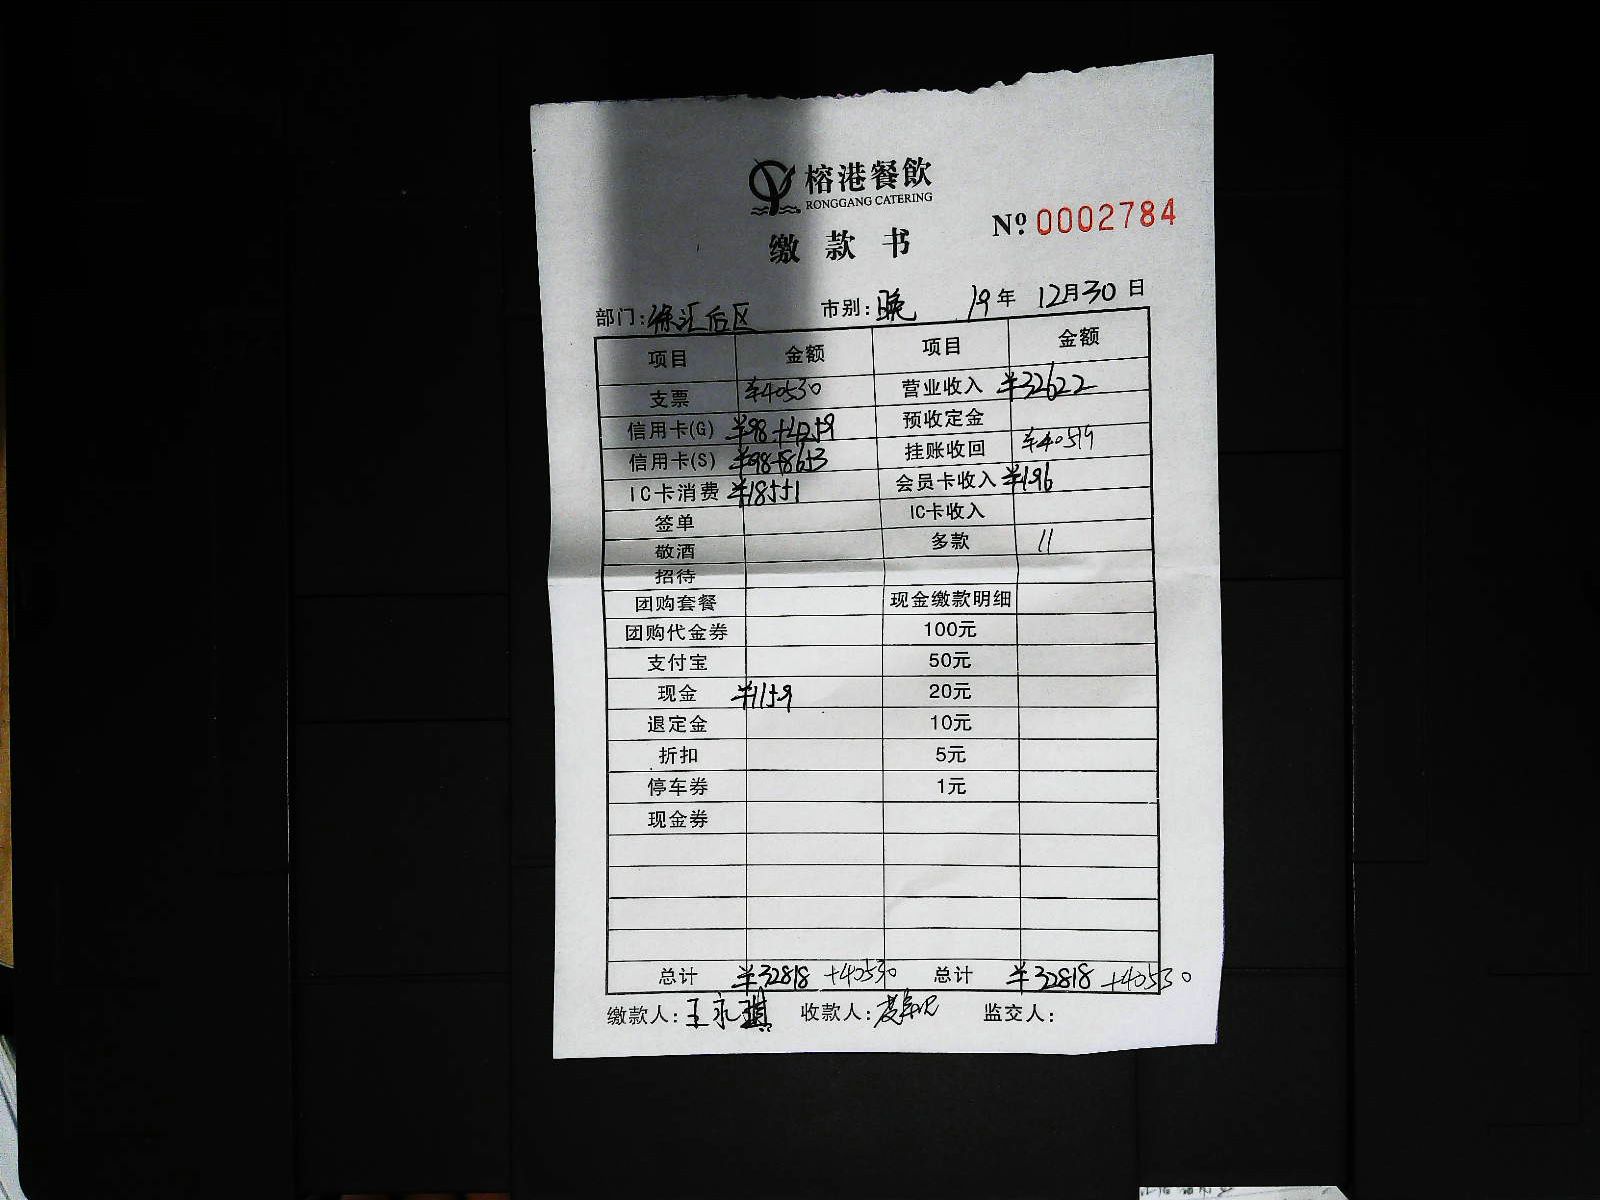 榕港餐飲
RONGGANG CATERING
缴款书
Nº. 0002784
部门: 徐汇后区 市别: 晚 19年 12月30日
项目 金额 项目 金额
支票 ¥40530 营业收入 ¥32622
信用卡(G) ¥98+4259 预收定金
信用卡(S) ¥98+8653 挂账收回 ¥40519
IC卡消费 ¥18551 会员卡收入 ¥196
签单 IC卡收入
敬酒 多款 11
招待
团购套餐 现金缴款明细
团购代金券 100元
支付宝 50元
现金 ¥1159 20元
退定金 10元
折扣 5元
停车券 1元
现金券
总计 ¥32818 +40530 总计 ¥32818 +40530
缴款人: 王永 收款人: 监交人: